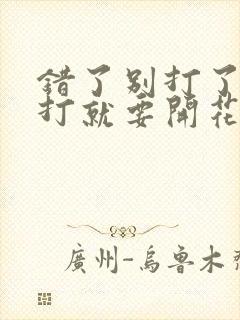 錯了别打了
打就要開花
廣州-烏魯木